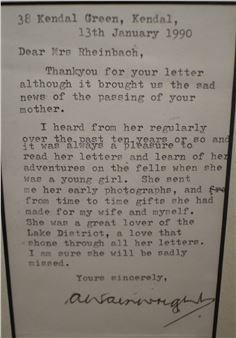 38 Kendal Green, Kendal,
13th January 1990
Dear Mrs Rheinbach,
Thankyou for your letter
although it brought us the sad
news of the passing of your
mother.
I heard from her regularly
over the past ten years or so and
it was always a pleasure to
read her letters and learn of her
adventures on the fells when she
was a young girl. She sent
me her early photographs, and
from time to time gifts she had
made for my wife and myself.
She was a great lover of the
Lake District, a love that
shone through all her letters.
I am sure she will be sadly
missed.
Yours sincerely,
AWainwright